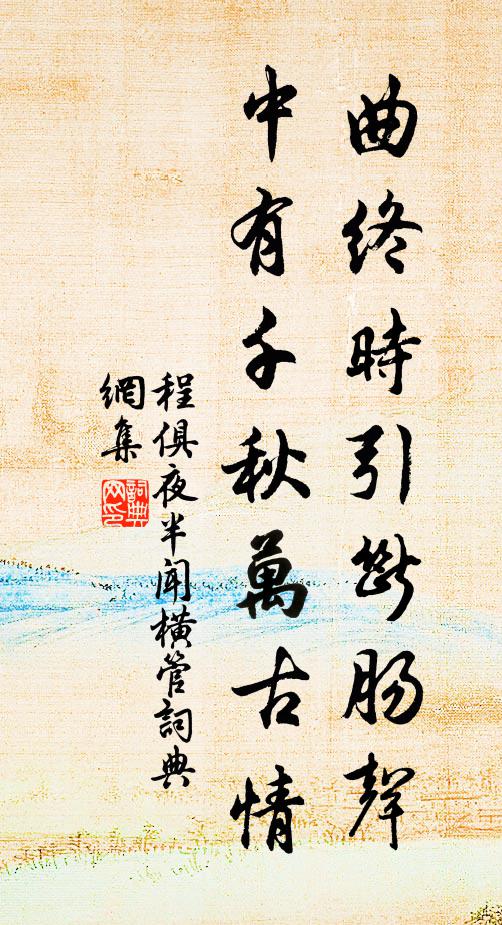 曲終時引斷腸聲
中有千秋萬古情
程俱夜半聞橫管詞典
網集
詞典
网印